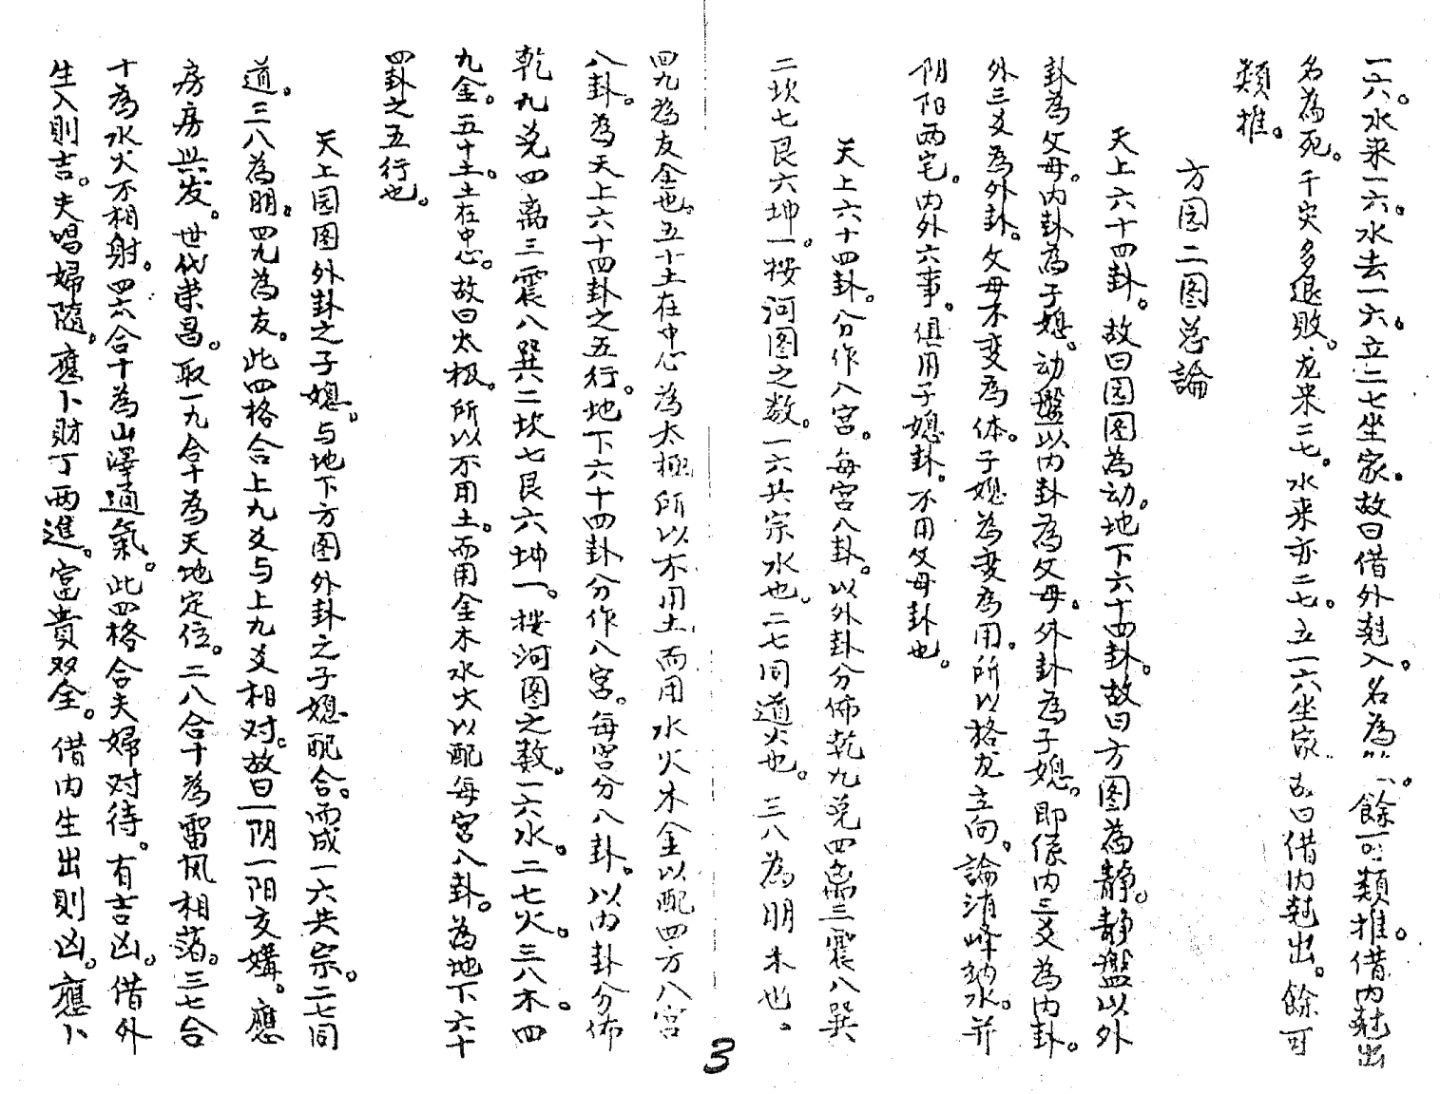 一六。水来一六。水去一六。立二七坐家。故曰借外尅入。名為。餘可類推。借内尅出
名為死。千灾多退敗。龙来二七。水来亦二七。立一六坐家。故曰借内尅出。餘可
類推。
方园二图总論
天上六十四卦。故曰园图為动。地下六十四卦。故曰方图為静。静盤以外
卦為父母。内卦為子媳。动盤以内卦為父母。外卦為子媳。即係内三爻為内卦。
外三爻為外卦。父母不变為体。子媳為变為用。所以格龙立向。論消峰納水。并
阴阳两宅。内外六事。俱用子媳卦。不用父母卦也。
天上六十四卦。分作八宫。每宫八卦。以外卦分佈乾九兑四离三震八巽
二坎七艮六坤一。按河图之数。一六共宗水也。二七同道火也。三八為朋木也。
四九為友金也。五十土在中心為太極所以不用土而用水火木金以配四方八宫
八卦。為天上六十四卦之五行。地下六十四卦分作八宫。每宫分八卦。以内卦分佈
乾九兑四离三震八巽二坎七艮六坤一。按河图之数。一六水。二七火。三八木。四
九金。五十土。土在中心。故曰太极。所以不用土。而用金木水火以配每宫八卦。為地下六十
四卦之五行也。
天上园图外卦之子媳。与地下方图外卦之子媳配合。而成一六共宗。二七同
道。三八為朋。四九為友。此四格合上九爻与上九爻相对。故曰一阴一阳交媾。應
房房兴发。世代荣昌。取一九合十為天地定位。二八合十為雷风相薄。三七合
十為水火不相射。四六合十為山澤通氣。此四格合夫婦对待。有吉凶。借外
生入則吉。夫唱婦隨。應卜財丁两進。富貴双全。借内生出則凶。應卜
3